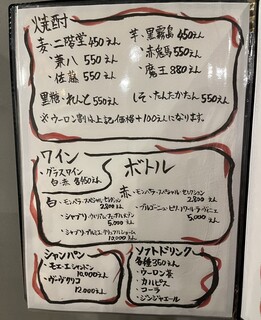 焼酎
麦・二階堂 450えん
・兼八 550えん
・佐藤 550えん
黒糖・れんと 550えん
芋・黒霧島 450えん
・赤兎馬 550えん
・魔王 880えん
しそ・たんたかたん 550えん
※ウーロン割は上記価格+100えんになります。
ワイン
・グラスワイン
白・赤 各450えん
ボトル
白・モンペラ・スペシャル・セレクション
2,800えん
・シャブリ
5,000えん
・シャブリ・プルミエ・クリュ
10,000えん
赤・モンペラ・スペシャル・セレクション
2,800えん
・ブルゴーニュ・ピノ・ノワール・ラ・ヴィニエ
5,000えん
シャンパン
・モエ・エ・シャンドン
10,000えん
・ヴーヴクリコ
12,000えん
ソフトドリンク
各種350えん
・ウーロン茶
・カルピス
・コーラ
・ジンジャエール